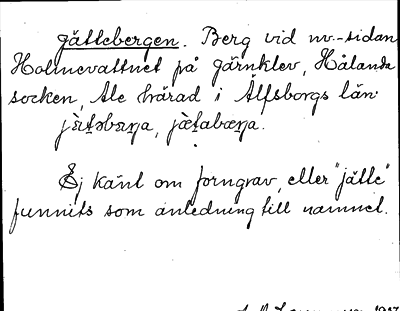 Jättebergen. Berg vid nv-sidan
Holmevattnet på Järnklev, Hålanda
socken, Ale härad i Älfsborgs län.
jæ̀t̯əbæʀn̯a, jæ̀t̯abæʀn̯a.
Ej känt om forngrav, eller "jätte"
funnits som anledning till namnet.